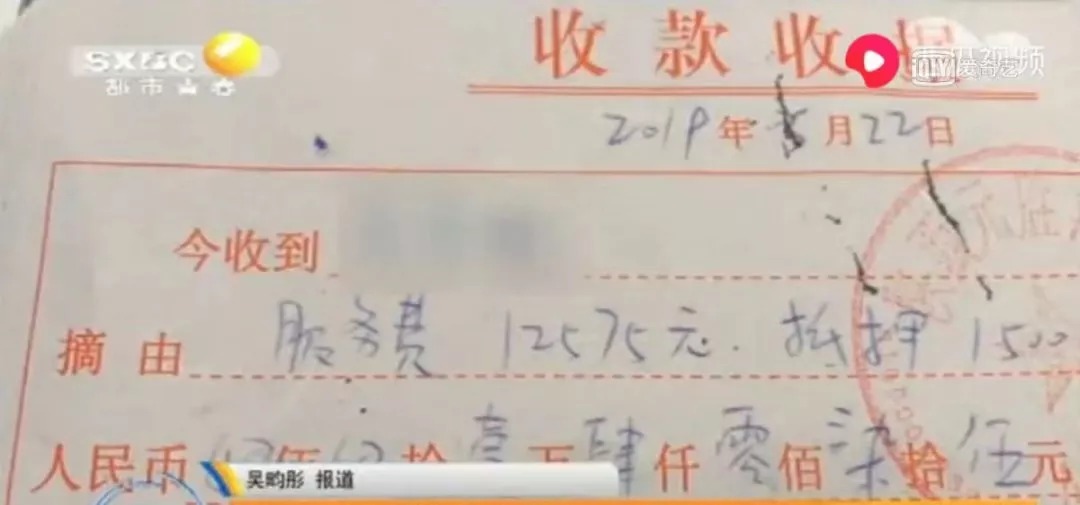 SXBC
都市青春
爱奇艺
视频
收款收据
2019年5月22日
今收到
摘由 服务费 12575元. 抵押 1500
人民币 拾壹万肆仟零佰柒拾伍元
吴昀彤 报道